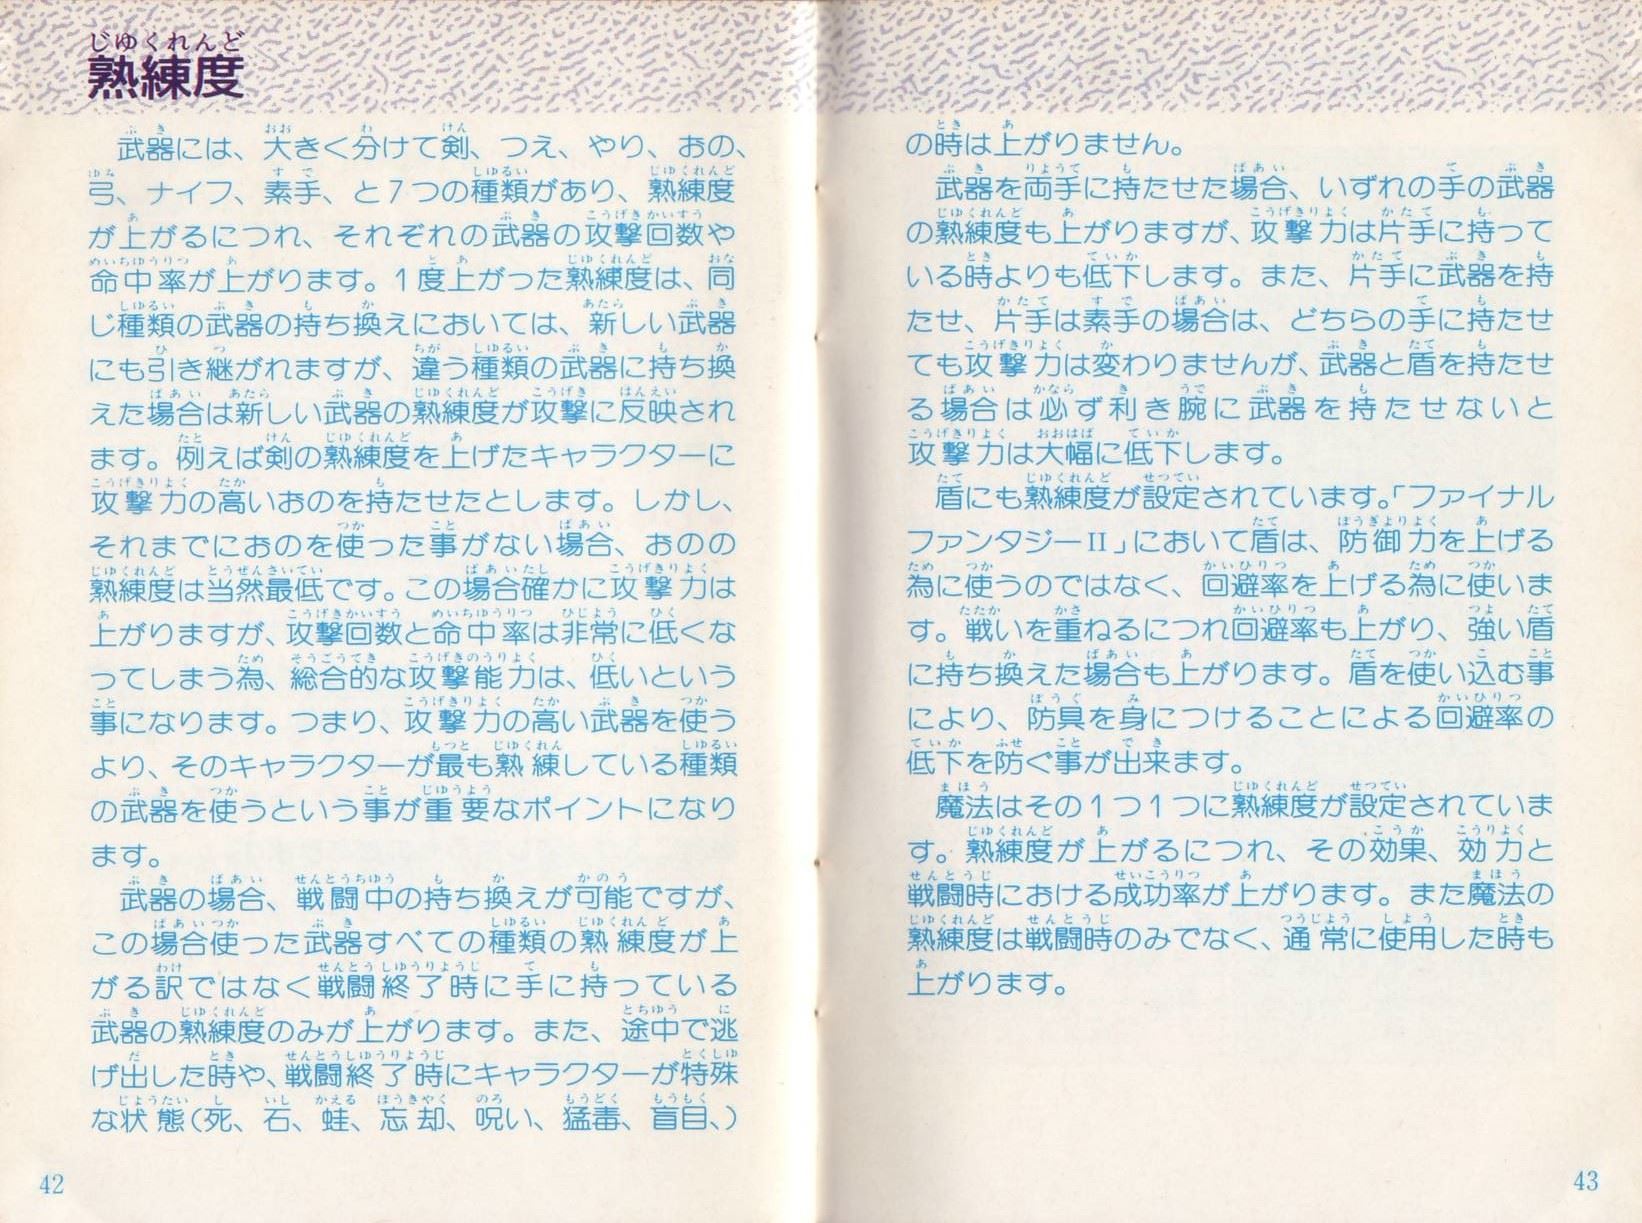 じゆくれんど
熟練度
武器には、大きく分けて剣、つえ、やり、おの、
弓、ナイフ、素手、と7つの種類があり、熟練度
が上がるにつれ、それぞれの武器の攻撃回数や
命中率が上がります。1度上がった熟練度は、同
じ種類の武器の持ち換えにおいては、新しい武器
にも引き継がれますが、違う種類の武器に持ち換
えた場合は新しい武器の熟練度が攻撃に反映され
ます。例えば剣の熟練度を上げたキャラクターに
攻撃力の高いおのを持たせたとします。しかし、
それまでにおのを使った事がない場合、おのの
熟練度は当然最低です。この場合確かに攻撃力は
上がりますが、攻撃回数と命中率は非常に低くな
ってしまう為、総合的な攻撃能力は、低いという
事になります。つまり、攻撃力の高い武器を使う
より、そのキャラクターが最も熟練している種類
の武器を使うという事が重要なポイントになり
ます。
武器の場合、戦闘中の持ち換えが可能ですが、
この場合使った武器すべての種類の熟練度が上
がる訳ではなく戦闘終了時に手に持っている
武器の熟練度のみが上がります。また、途中で逃
げ出した時や、戦闘終了時にキャラクターが特殊
な状態(死、石、蛙、忘却、呪い、猛毒、盲目、)
42
の時は上がりません。
武器を両手に持たせた場合、いずれの手の武器
の熟練度も上がりますが、攻撃力は片手に持って
いる時よりも低下します。また、片手に武器を持
たせ、片手は素手の場合は、どちらの手に持たせ
ても攻撃力は変わりませんが、武器と盾を持たせ
る場合は必ず利き腕に武器を持たせないと
攻撃力は大幅に低下します。
盾にも熟練度が設定されています。「ファイナル
ファンタジーII」において盾は、防御力を上げる
為に使うのではなく、回避率を上げる為に使いま
す。戦いを重ねるにつれ回避率も上がり、強い盾
に持ち換えた場合も上がります。盾を使い込む事
により、防具を身につけることによる回避率の
低下を防ぐ事が出来ます。
魔法はその1つ1つに熟練度が設定されていま
す。熟練度が上がるにつれ、その効果、効力と
戦闘時における成功率が上がります。また魔法の
熟練度は戦闘時のみでなく、通常に使用した時も
上がります。
43